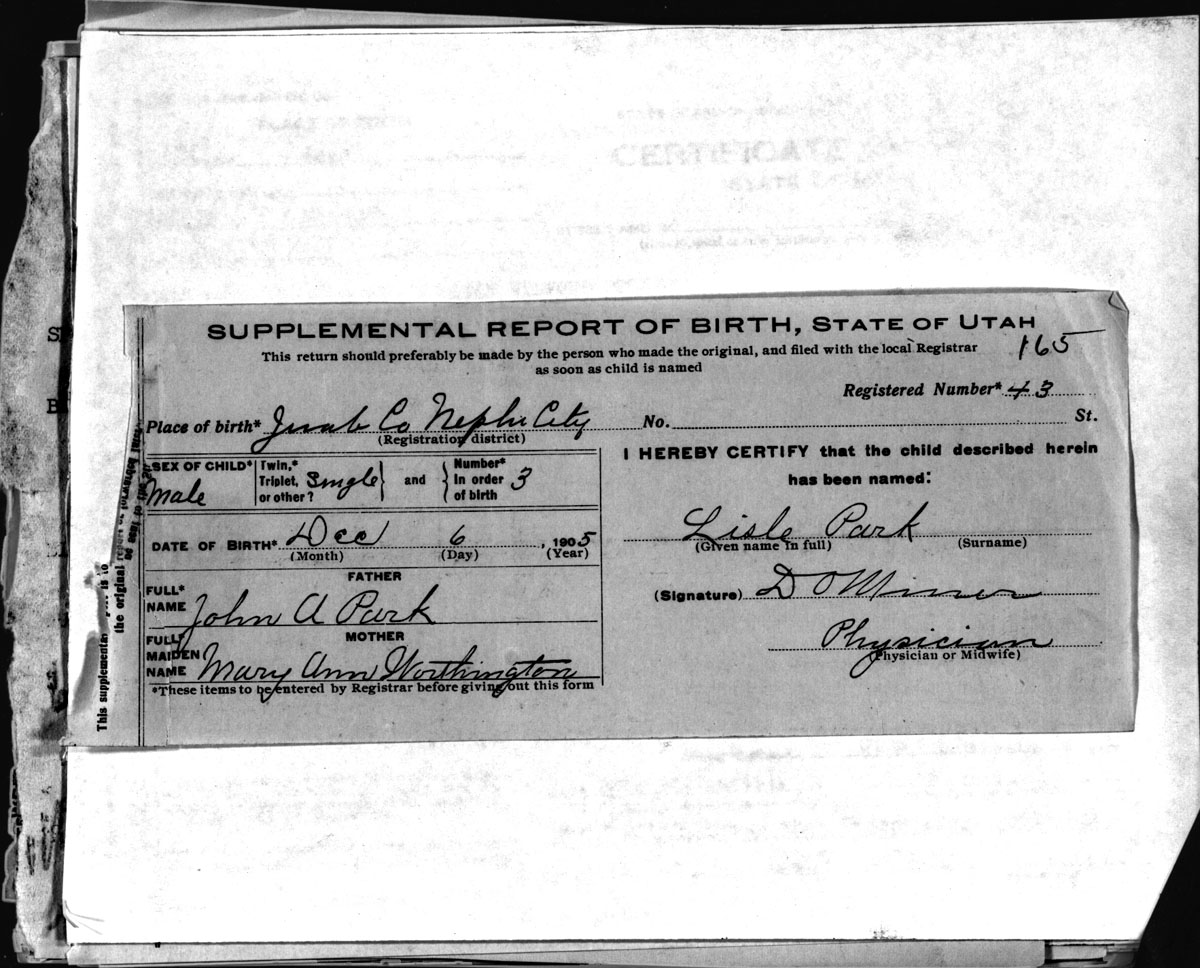 SUPPLEMENTAL REPORT OF BIRTH, STATE OF UTAH
This return should preferably be made by the person who made the original, and filed with the local Registrar
as soon as child is named
165
Registered Number* 43
Place of birth* Juab Co Nephi City No. St.
(Registration district)
SEX OF CHILD*
Male
Twin,*
Triplet,
or other?
Single
and
Number*
In order
of birth
3
DATE OF BIRTH* Dec 6, 1905
(Month) (Day) (Year)
FATHER
FULL*
NAME John A Park
MOTHER
FULL*
MAIDEN
NAME Mary Ann Worthington
*These items to be entered by Registrar before giving out this form
I HEREBY CERTIFY that the child described herein
has been named:
Lisle Park
(Given name in full) (Surname)
(Signature) D O Miner
Physician
(Physician or Midwife)
This supplemental
the original
CERTIFICATE